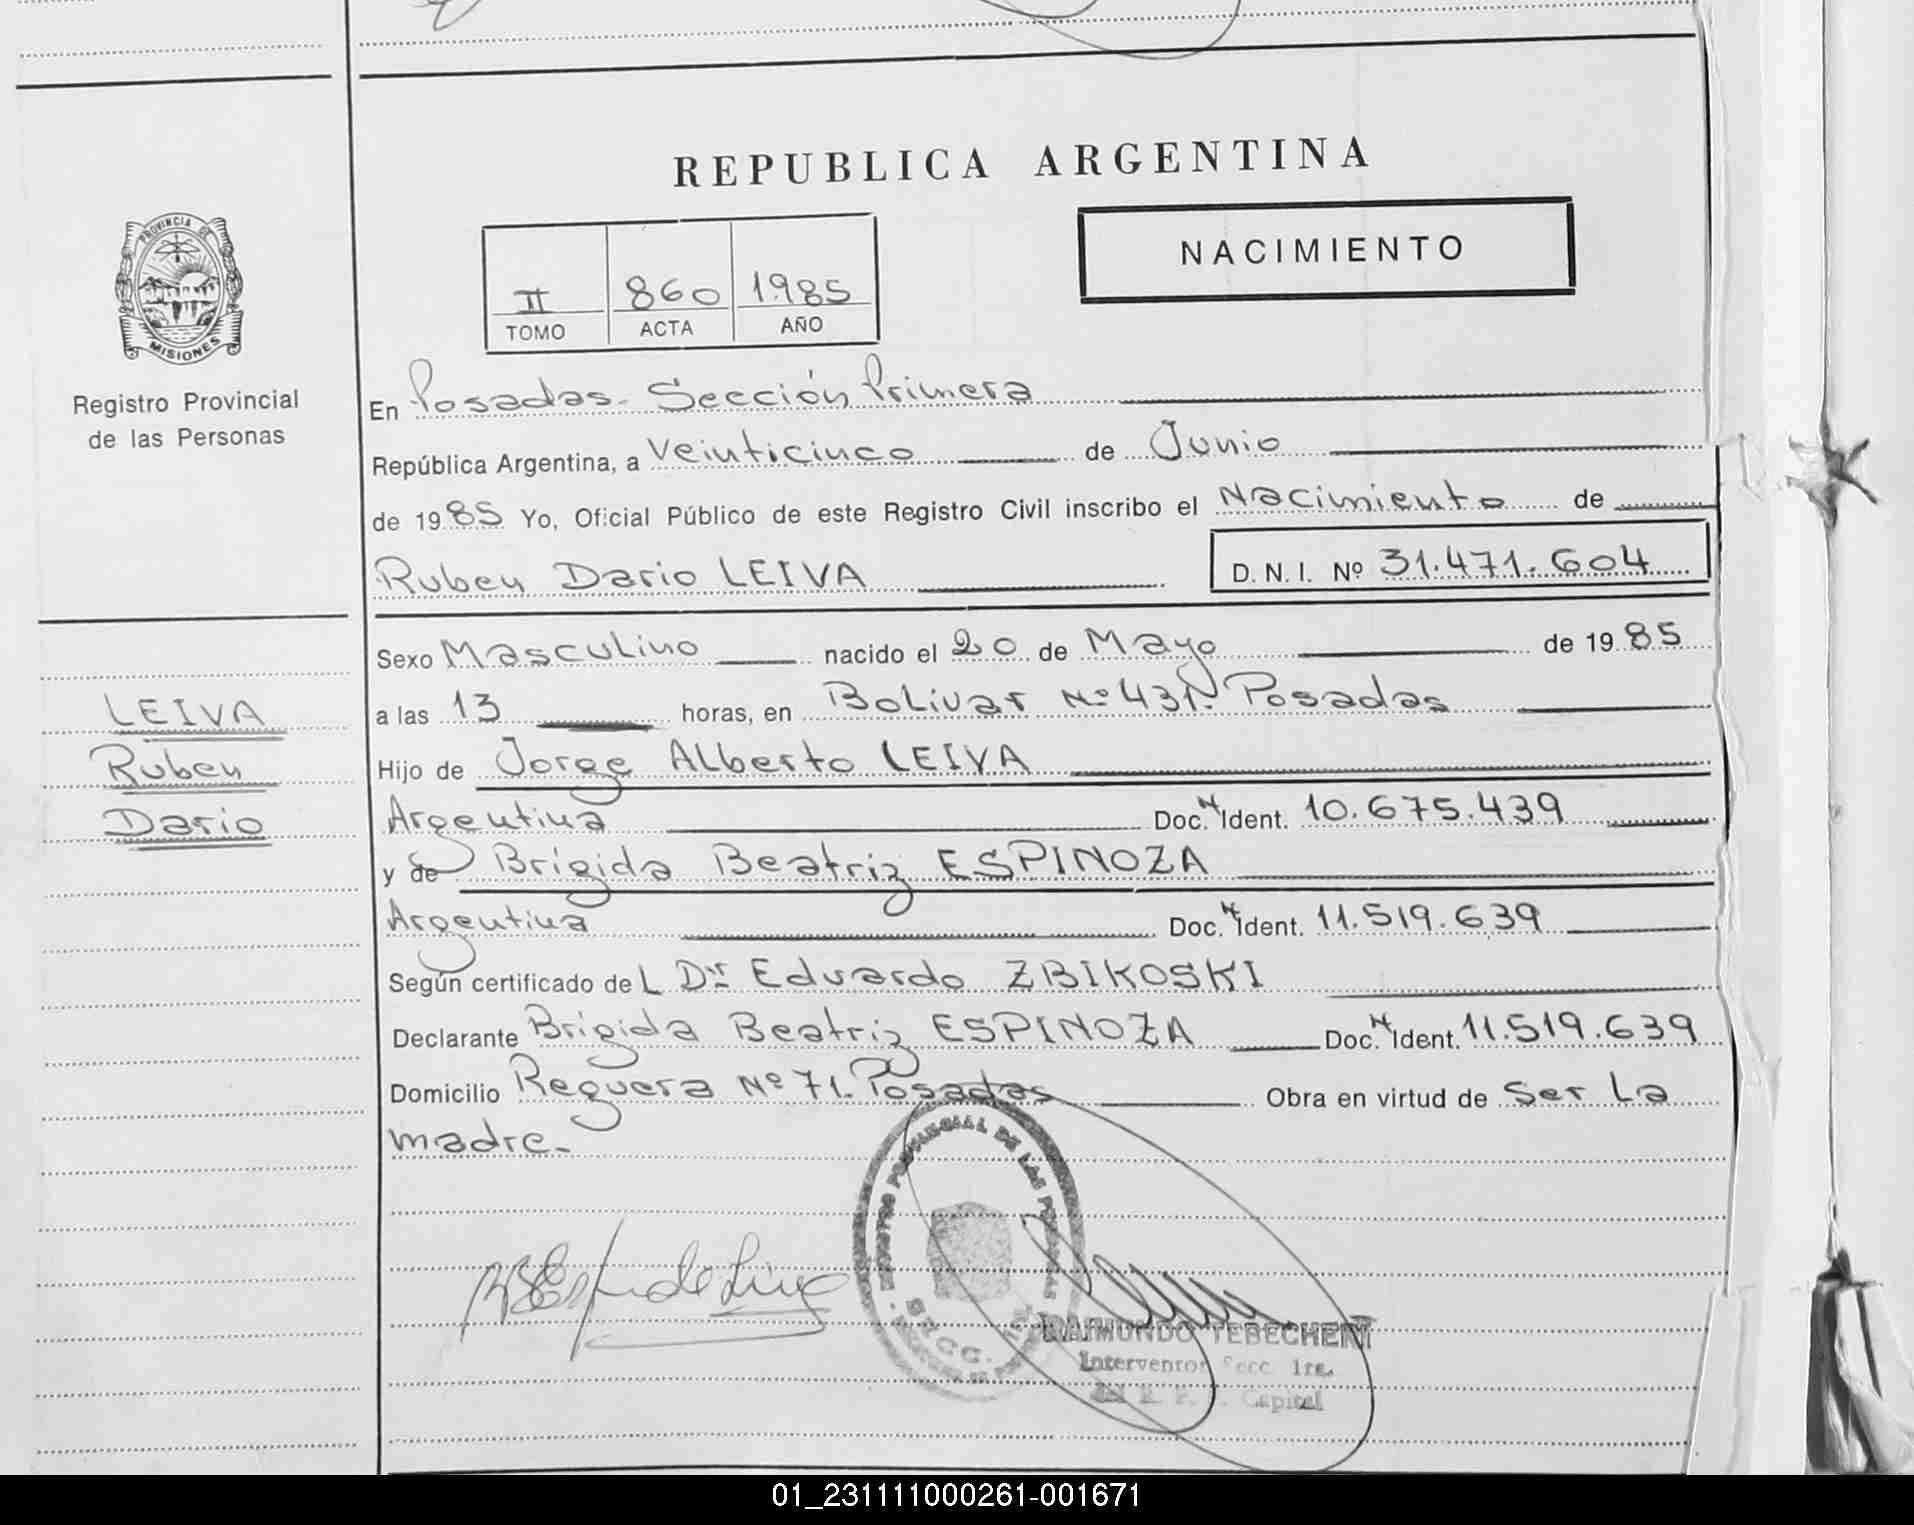 REPUBLICA ARGENTINA
PROVINCIA DE
MISIONES
Registro Provincial
de las Personas
NACIMIENTO
II 860 1.985
TOMO ACTA AÑO
En Posadas. Sección Primera
República Argentina, a Veinticinco de Junio
de 1985 Yo, Oficial Público de este Registro Civil inscribo el Nacimiento de
Ruben Dario LEIVA D. N. I. Nº 31.471.604
Sexo Masculino nacido el 20 de Mayo de 1985
a las 13 horas, en Bolivar Nº 431. Posadas
LEIVA
Ruben
Dario
Hijo de Jorge Alberto LEIVA
Argentina Doc. N Ident. 10.675.439
y de Brigida Beatriz ESPINOZA
Argentina Doc. N Ident. 11.519.639
Según certificado del Dr. Eduardo ZBIKOSKI
Declarante Brigida Beatriz ESPINOZA Doc. N Ident. 11.519.639
Domicilio Reguera Nº 71. Posadas Obra en virtud de ser la
madre.-
REGISTRO PROVINCIAL DE LAS PERSONAS
SECC.
RAIMUNDO TEBECHERI
Interventor Secc. 1ra.
Capital
01_231111000261-001671